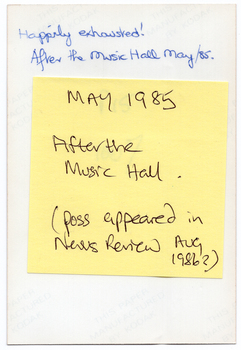 Happily exhausted!
After the Music Hall May/85.
MAY 1985
After the
Music Hall.
(poss appeared in
News Review Aug
1986?)